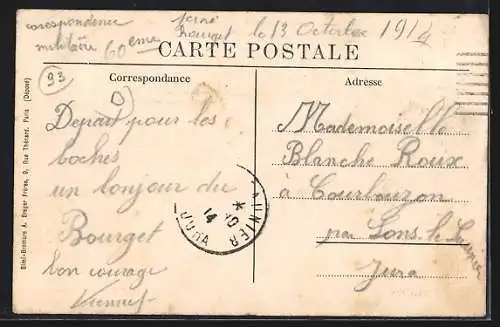 correspondence
militaire 60eme
le 13 Octobre 1914
CARTE POSTALE
93
Correspondance
Adresse
Départ pour les
boches
un bonjour du
Bourget
bon courage
Mademoiselle
Blanche Roux
à Courbouzon
par Lons-le-Saunier
Jura
SAUNIER
* 10
14
JURA
Simi-Bromure A. Breger Frères, 9, Rue Thénard, Paris (Déposé)